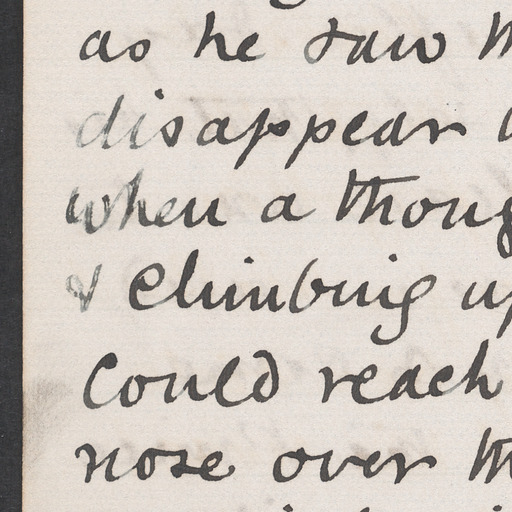 as he saw
disappear
when a
& Climbing
Could reach
nose over